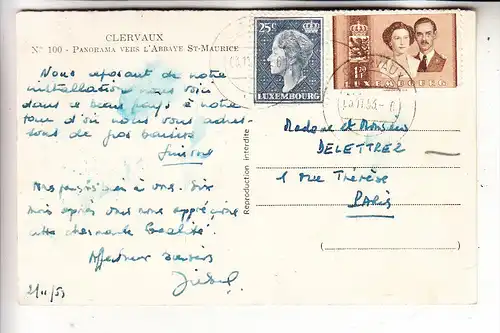 CLERVAUX
N° 100 - PANORAMA VERS L'ABBAYE ST-MAURICE
Nous reposant de notre
installation nous voici
dans ce beau pays à notre
tour d'où nous vous adres-
sons de gros baisers
Simone
mois après vous nous apprécions
cette charmante localité
Affectueux baisers
2/11/53
25c
LUXEMBOURG
1F20
LUXEMBOURG
Reproduction interdite
Madame et Monsieur
DELETTREZ
1 rue Thérèse
PARIS